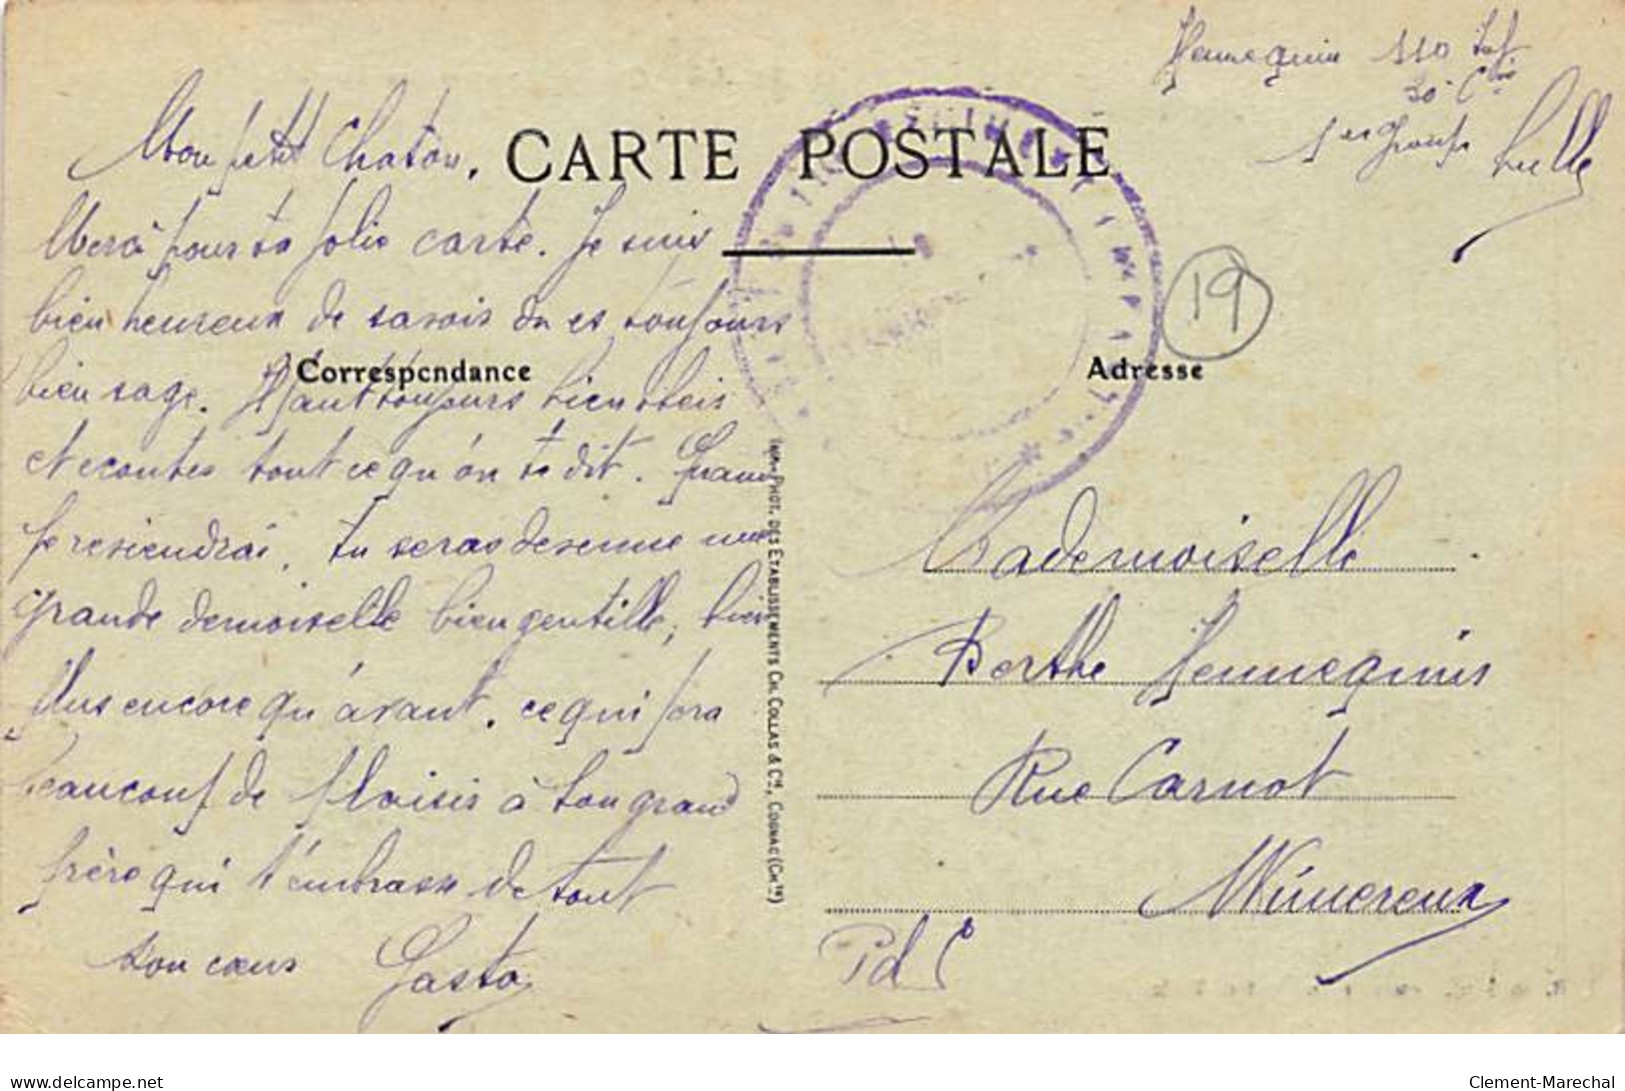 Hennequin 110 Inf
30e Cie
1er groupe Tulle
CARTE POSTALE
Mon petit Chaton,
Merci pour ta jolie carte. Je suis
bien heureux de savoir que tu es toujours
bien sage. Il faut toujours bien obeir
et ecouter tout ce qu'on te dit. Quand
je reviendrai, tu seras devenue une
grande demoiselle bien gentille, bien
plus encore qu'avant, ce qui fera
beaucoup de plaisir à ton grand
frère qui t'embrasse de tout
son cœur Gaston
Correspondance
Adresse
19
IMP. PHOT. DES ETABLISSEMENTS CH. COLLAS & Cie, COGNAC (CHte)
Mademoiselle
Berthe Hennequin
Rue Carnot
Wimereux
P d C
delcampe.net
Clement-Marechal